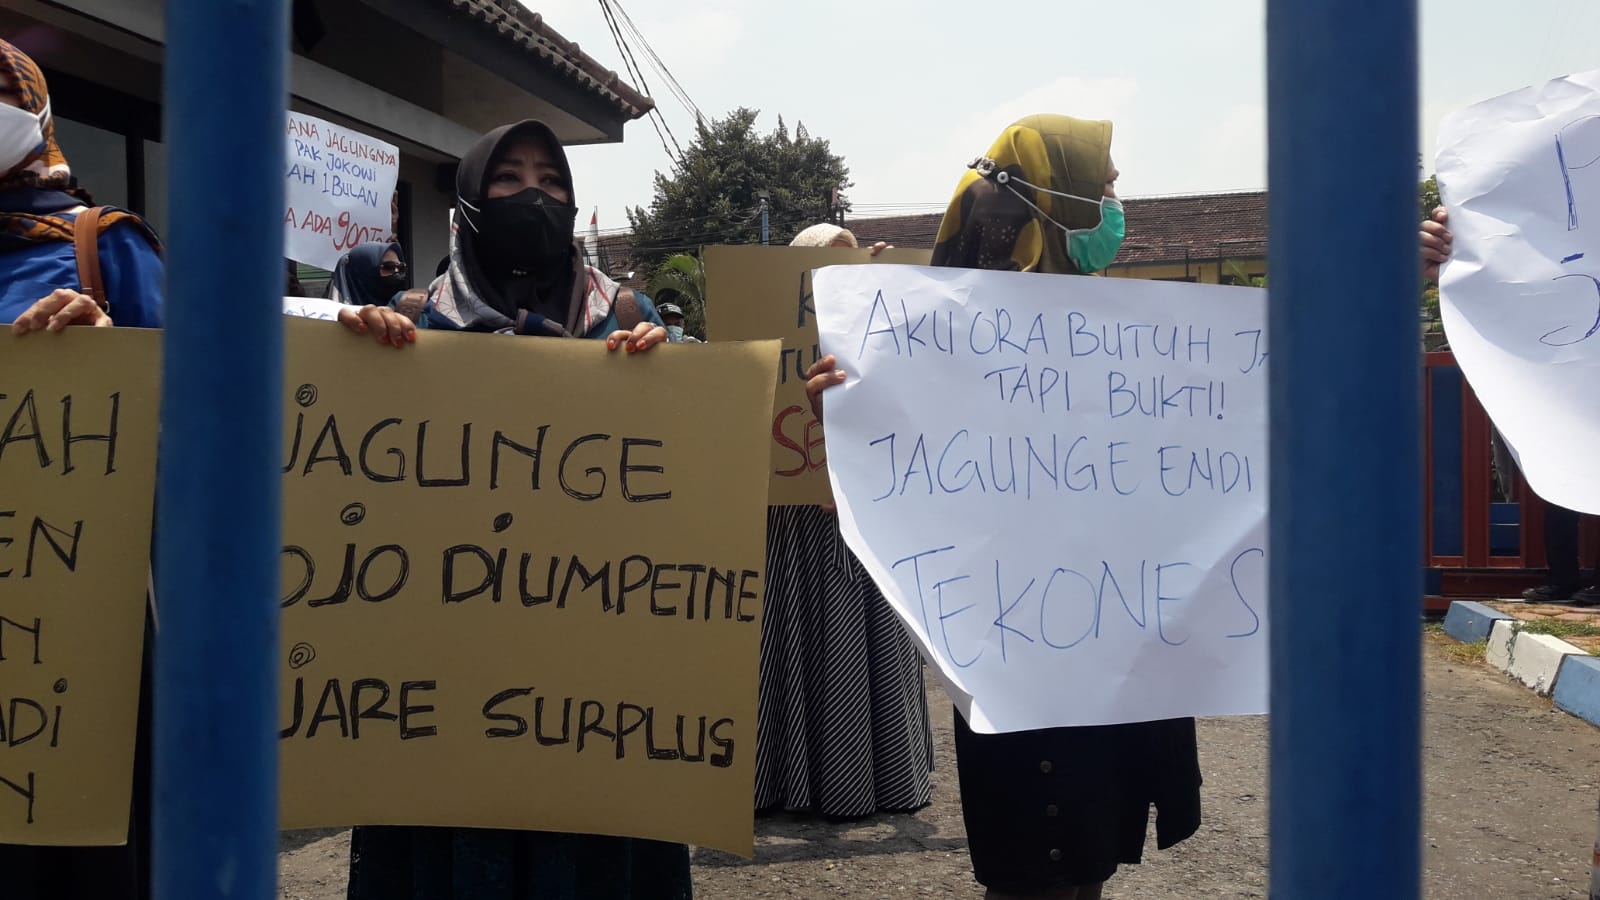 ANA JAGUNGNYA
PAK JOKOWI
AH 1 BULAN
A ADA 900
TAH
EN
N
ADI
N
JAGUNGE
OJO DIUMPETNE
JARE SURPLUS
K
TU
SE
AKU ORA BUTUH JA
TAPI BUKTI!!
JAGUNGE ENDI
TEKONE S
P
J